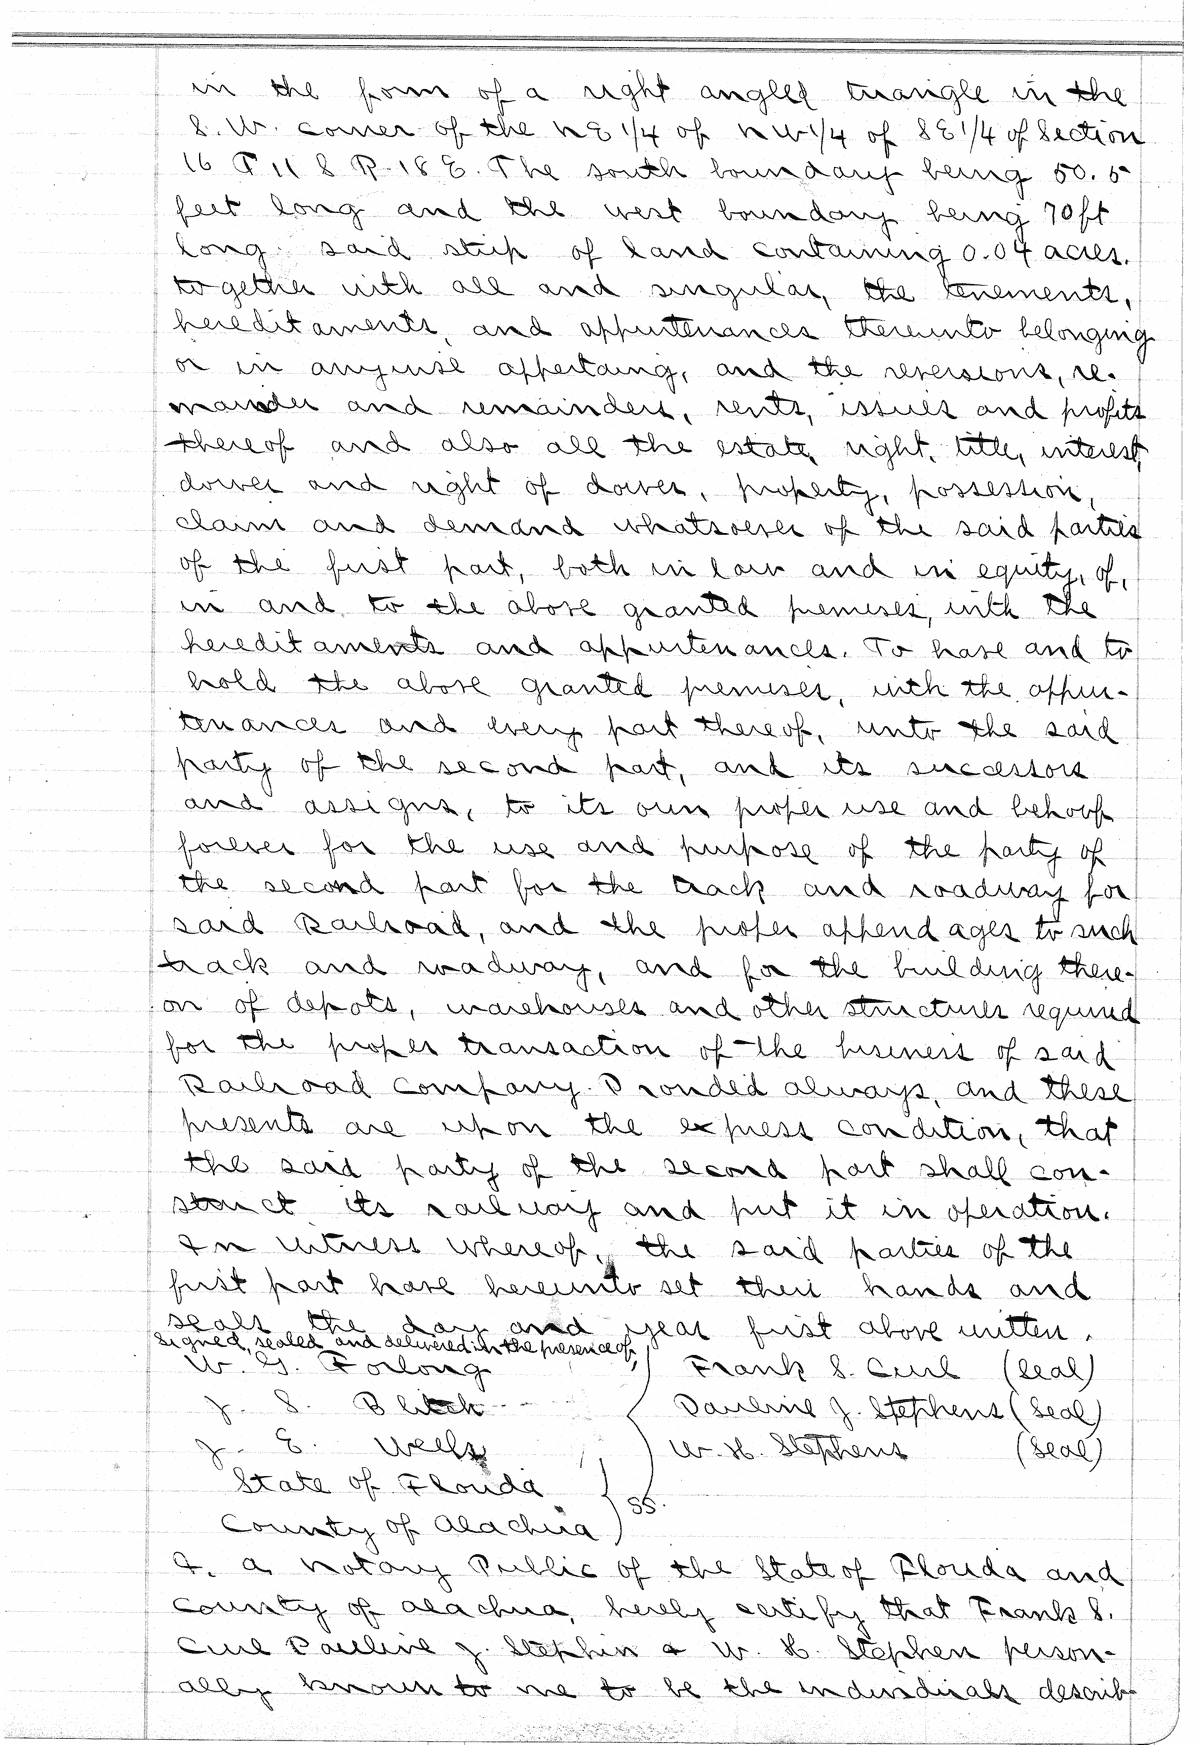 in the form of a right angled triangle in the
S.W. corner of the NE 1/4 of NW 1/4 of SE 1/4 of Section
16 T 11 S R. 18 E. The south boundary being 50.5
feet long and the west boundary being 70 ft
long. said strip of land containing 0.04 acres.
together with all and singular, the tenements,
hereditaments, and appurtenances thereunto belonging
or in anywise appertaing, and the reversions, re-
mainder and remainders, rents, issues and profits
thereof and also all the estate, right, title, interest,
dower and right of dower, property, possession,
claim and demand whatsoever of the said parties
of the first part, both in law and in equity, of,
in and to the above granted premises, with the
hereditaments and appurtenances. To have and to
hold the above granted premises, with the appur-
tenances and every part thereof, unto the said
party of the second part, and its successors
and assigns, to its own proper use and behoof
forever for the use and purpose of the party of
the second part for the track and roadway for
said Railroad, and the proper appendages to such
track and roadway, and for the building there-
on of depots, warehouses and other structures required
for the proper transaction of the business of said
Railroad Company. Provided always, and these
presents are upon the express condition, that
the said party of the second part shall con-
struct its railway and put it in operation.
In witness whereof, the said parties of the
first part have hereunto set their hands and
seals the day and year first above written.
Signed, sealed and delivered in the presence of,
W. G. Forlong Frank S. Curl (Seal)
J. S. Blitch Pauline J. Stephens (Seal)
J. E. Wells W. H. Stephens (Seal)
State of Florida
SS.
County of Alachua
I, a Notary Public of the State of Florida and
County of Alachua, hereby certify that Frank S.
Curl Pauline J. Stephin & W. H. Stephen person-
ally known to me to be the individuals describ-